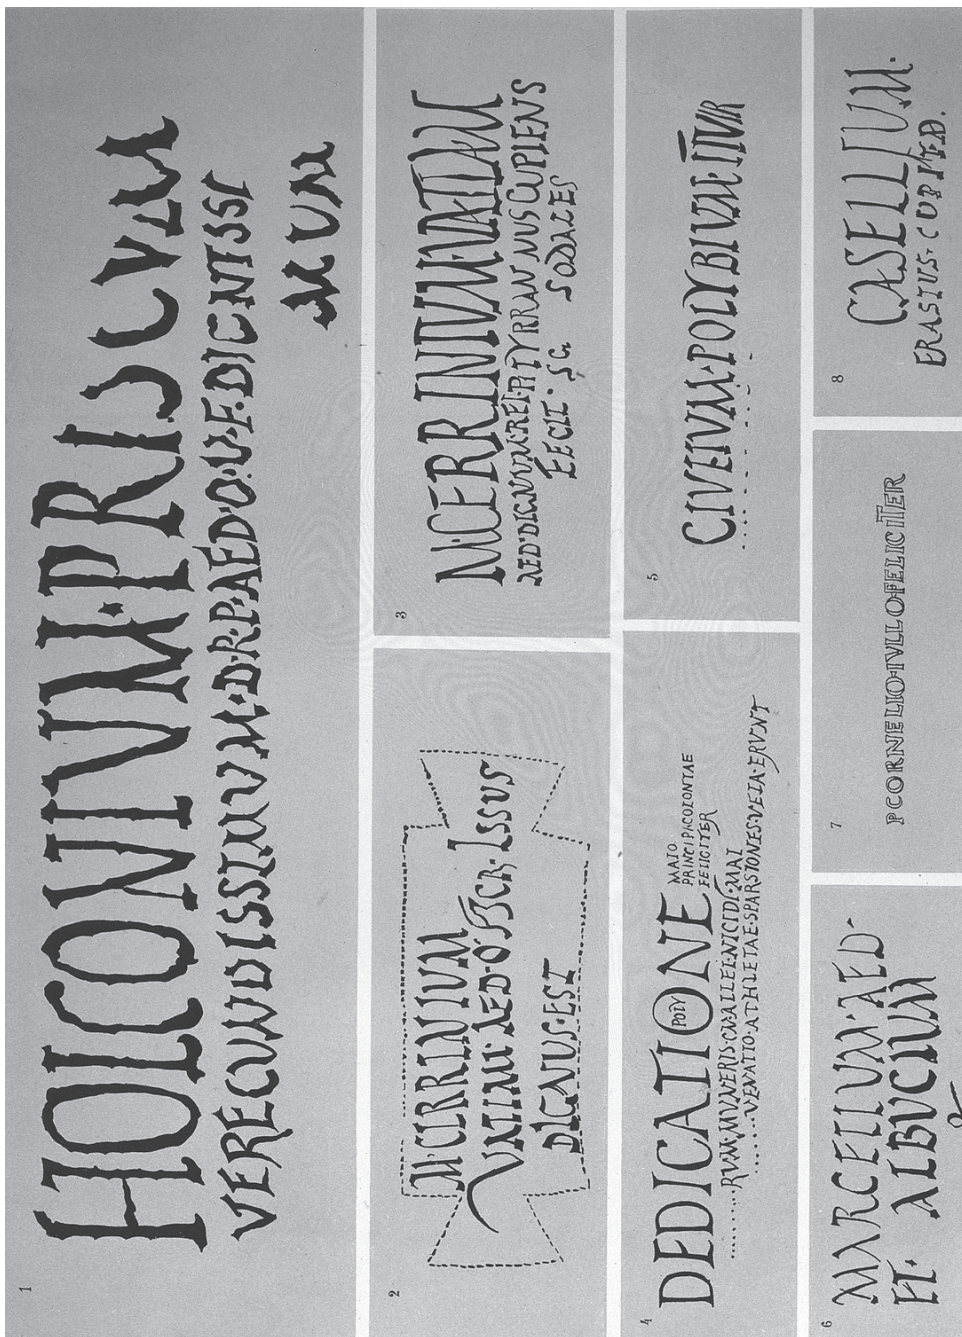 1
HOLCONIVM·PRISCVM
VERECVNDISSIMVM·D·R·P·AED·O·V·F·DIGNISSI
MVM
2
M·CERRINIUM
VATIAM·AED·O SCR· ISSVS
DIGNUS·EST
3
M·CERRINIVM·VATIAM
AED·DIGNVM·REI·P·TYRRANNUS CUPIENS
FECIT · SC· SODALES
4
DEDICATIONE
POLY
MAIO
PRINCIPI COLONIAE
FELICITER
RVM·MVNERIS·CN·ALLEI·NIGIDI·MAI
VENATIO·ATHLETAE·SPARSIONES·VELA·ERVNT
5
C IVLIVM·POLYBIVM·IIVIR
6
MARCELLVM·AED·
ET· ALBUCIUM
7
P CORNELIO·IVLLO FELICITER
8
CASELLIUM·
ERASTUS·CUPIT·AED.